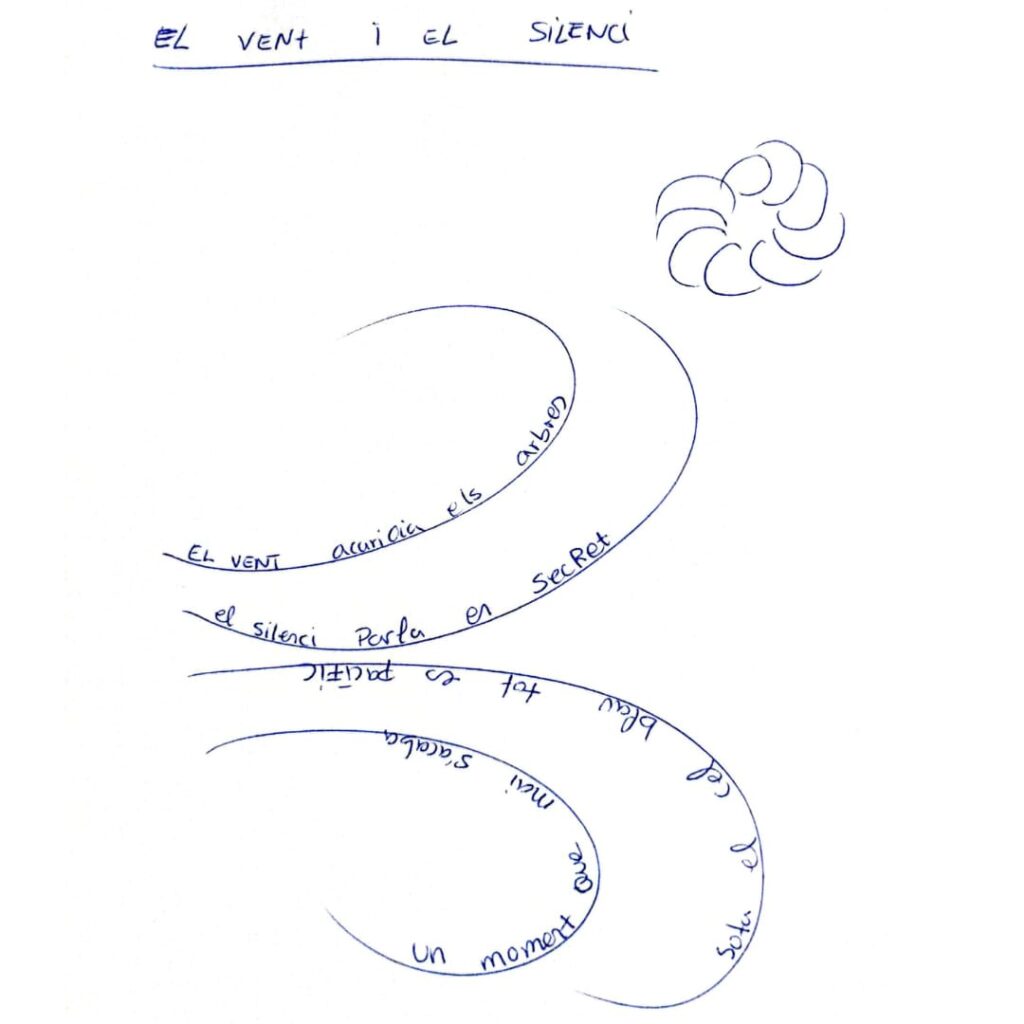 EL VENT I EL SILENCI
EL VENT acaricia els arbres
el silenci Parla en SecRet
Sota el cel blau tot es pacífic
un moment que mai s'acaba